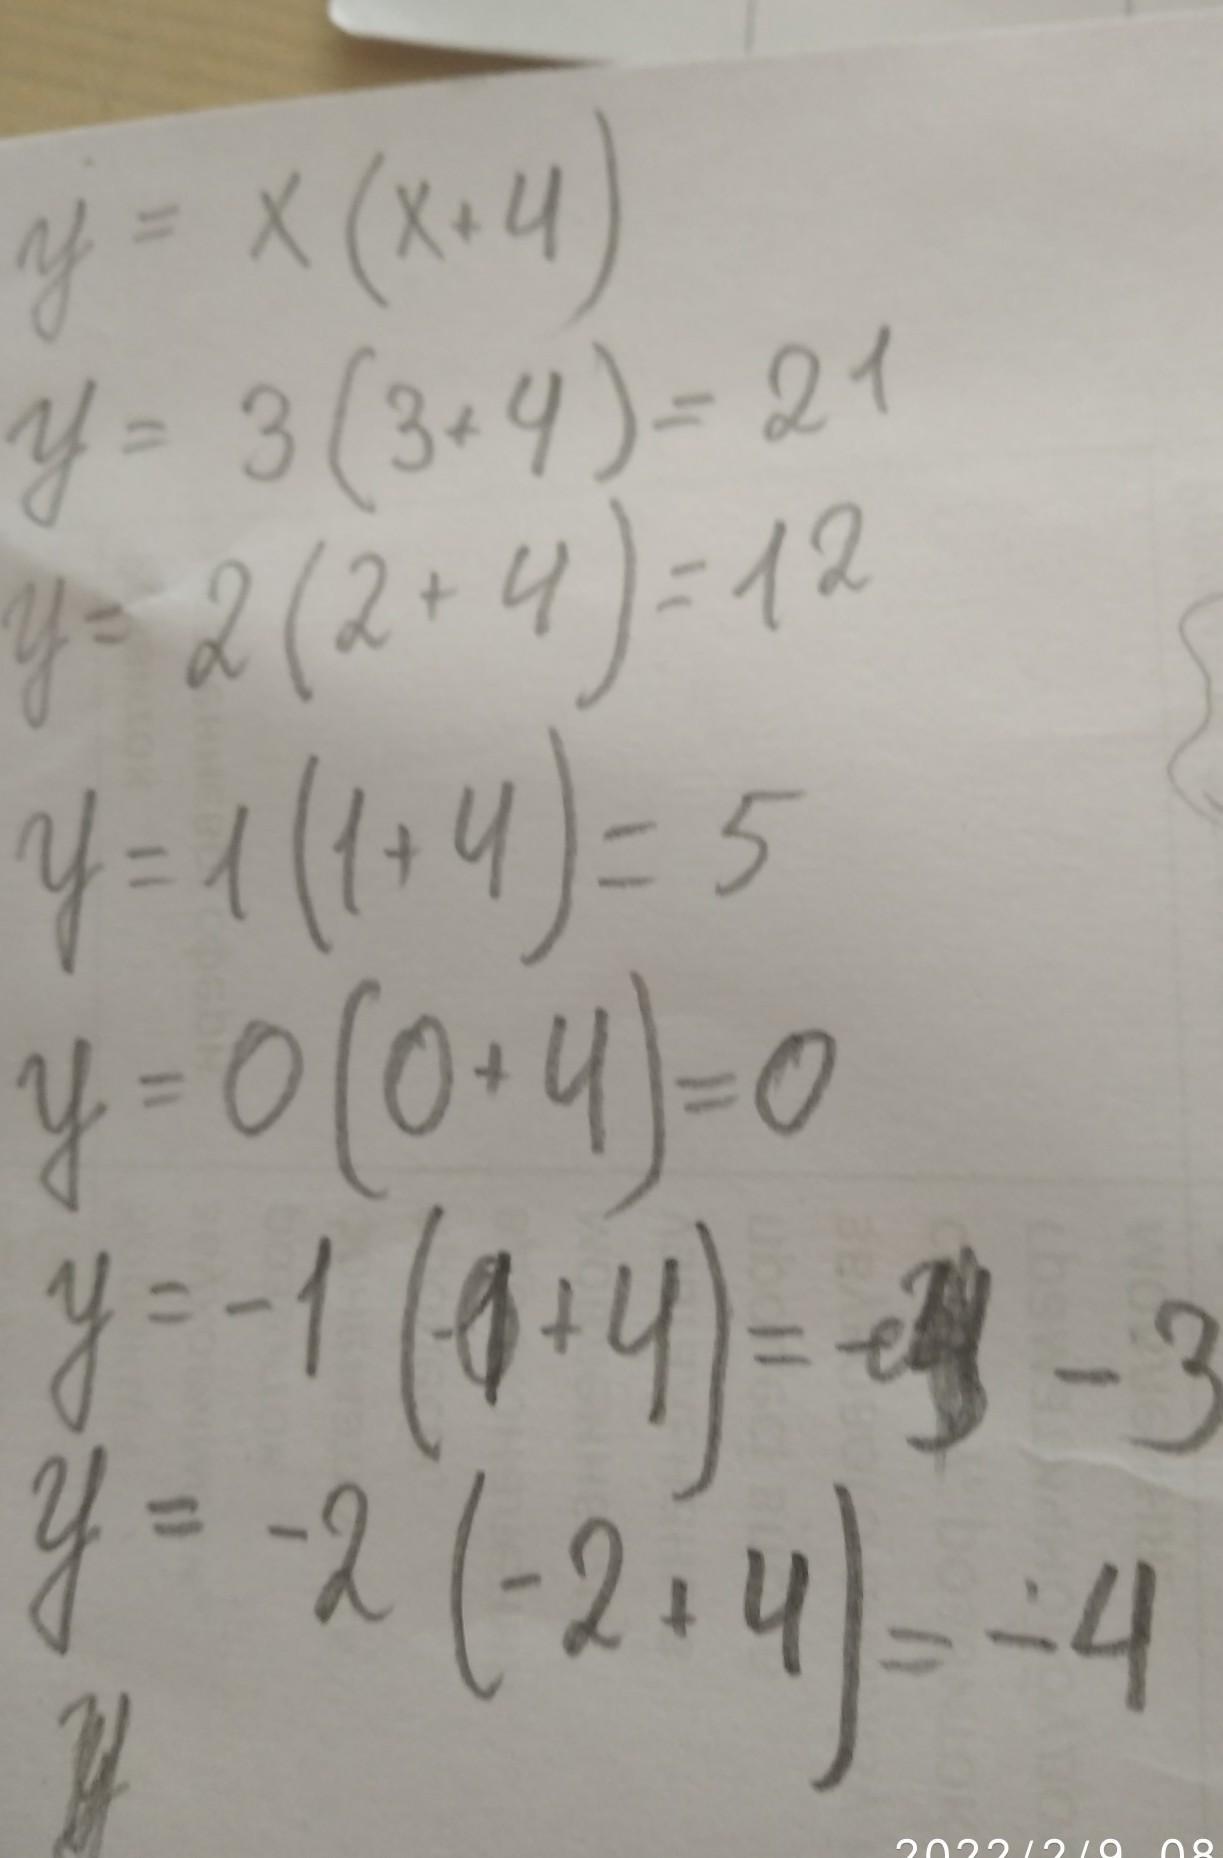 y = x(x+4)
y = 3(3+4)=21
y= 2(2+4)=12
y=1(1+4)=5
y=0(0+4)=0
y=-1(-1+4)= -3
y = -2(-2+4)=-4
y
2022/2/9 08